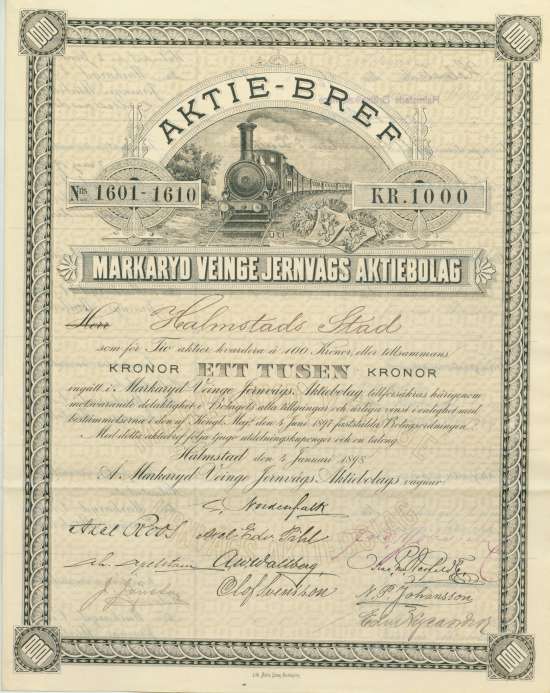 1000
1000
Halmstads
AKTIE-BREF
Nris 1601-1610
KR. 1000
MARKARYD VEINGE JERNVÄGS AKTIEBOLAG
Herr Halmstads Stad
som för Tio aktier hvardera à 100 Kronor, eller tillsammans
KRONOR ETT TUSEN KRONOR
ingått i Markaryd Veinge Jernvägs Aktiebolag tillförsäkras härigenom
motsvarande delaktighet i Bolagets alla tillgångar och årliga vinst i enlighet med
bestämmelserna i den af Kongl. Maj:t den 4 Juni 1897 fastställda Bolagsordningen.
Med detta aktiebref följa tjugo utdelningskuponger och en talong.
Halmstad den 4 Januari 1898.
A. Markaryd Veinge Jernvägs Aktiebolags vägnar:
C. Nordenfalk
Axel Roos
Axel Edv.
A.W. Wallberg
J. Jönsson
Olof Svensson
N. P. Johansson
1000
1000